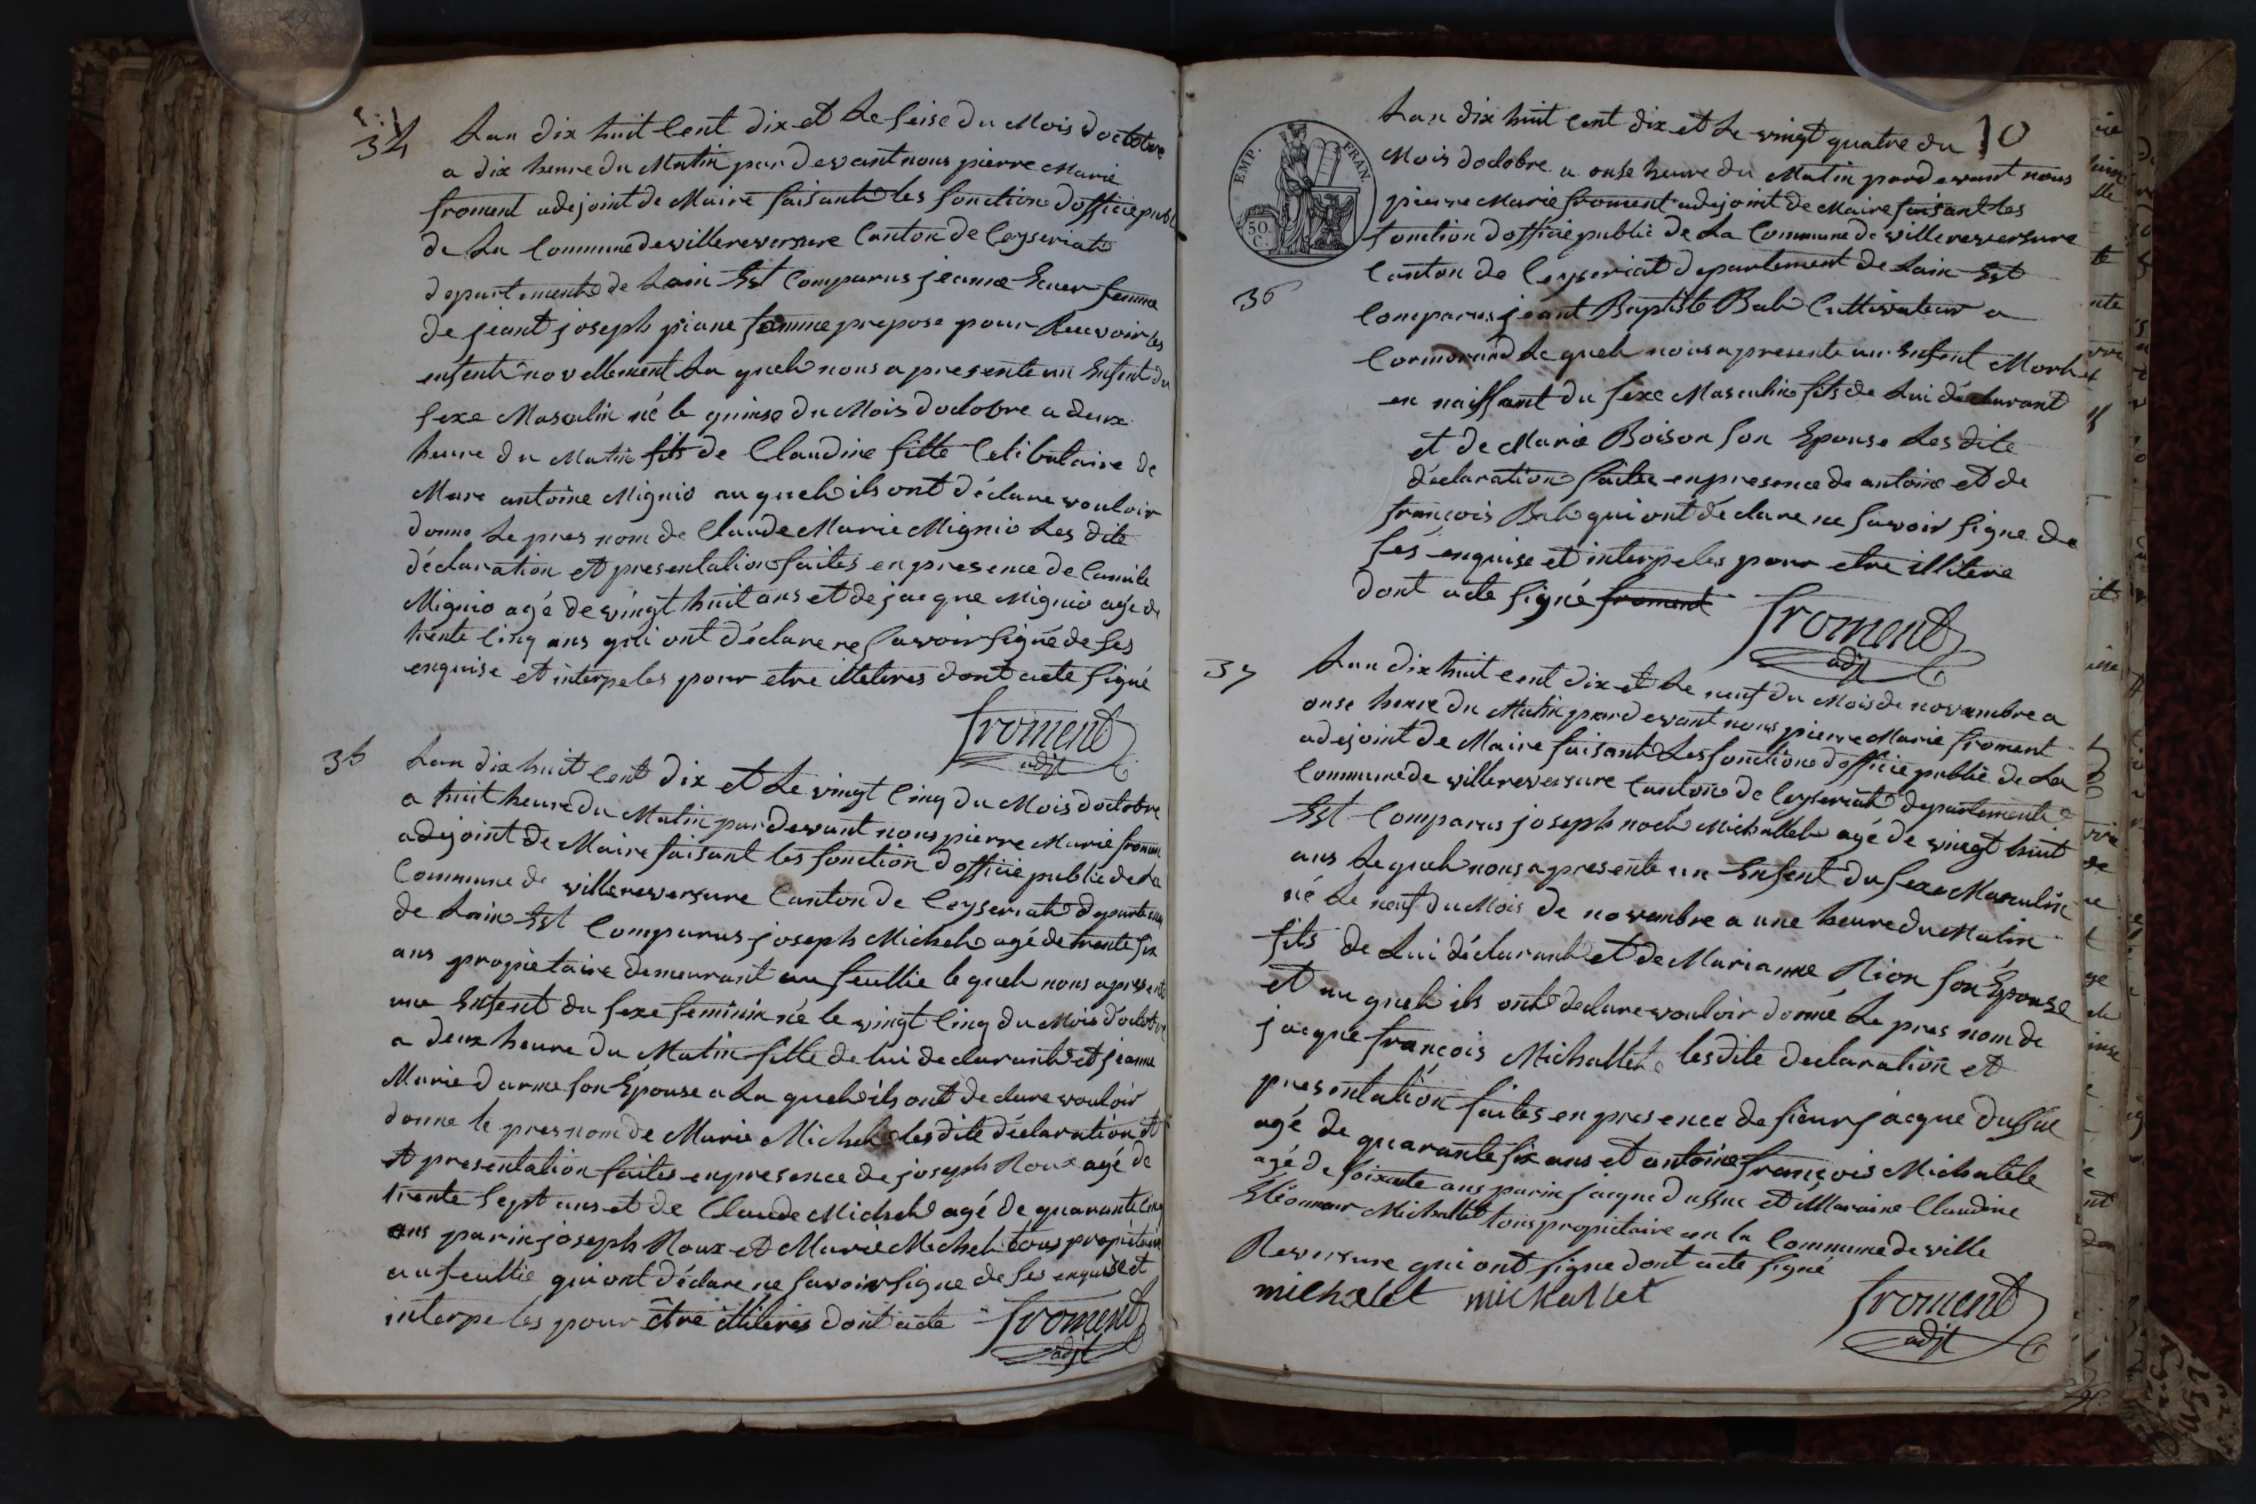 34
Lan dix huit Cent dix et Le seise du Mois doctobre
a dix heure du Matin par devant nous pierre Marie
froment adejoint de Maire faisant les fonction dofficie publ
de La Commune de villereversure Canton de Ceyseriat
departement de Lain Est Comparus jeanne femme
de jeant joseph piane famme prepose pour Recevoir les
enfent novellement La quel nous a presente un Enfent du
sexe Masculin né le quinse du Mois doctobre a deux
heure du Matin fils de Claudine fille Celibataire de
Marc antoine Mignio au quel ils ont déclare vouloir
donne Le pres nom de Claude Marie Mignio Les dite
déclaration et presentation faites en presence de Camile
Mignio agé de vingt huit ans et de jacque Mignio agé de
trente Cinq ans qui ont déclare ne savoir signé de ses
enquise et interpeles pour etre illeteres dont acte signé
froment
adjt
35
Lan dix huit Cent dix et Le vingt Cinq du Mois doctobre
a huit heure du Matin par devant nous pierre Marie fromen
adejoint de Maire faisant les fonction dofficie public de La
Commune de villereversure Canton de Ceyseriat departemen
de Lain Est Comparus joseph Michel agé de trente six
ans propietaire demeurant au feullie le quel nous a present
une Enfent du sexe feminin né le vingt Cinq du Mois doctobre
a deux heure du Matin fille de lui declarant et jeanne
Marie darme son Épouse a La quel ils ont declare vouloir
donne le pres nom de Marie Michel les dite déclaration et
et presentation faites en presence de joseph Roux agé de
trente Sept ans et de Claude Michel agé de quarante Cinq
ans parin joseph Roux et Marie Michel tous propietaire
au feullie qui ont déclare ne savoir signe de ses enquise et
interpeles pour être illiteres dont acte
froment
adjt
10
EMP. FRAN.
50 C.
36
Lan dix huit cent dix et Le vingt quatre du
Mois doctobre a onse heure du Matin par devant nous
pierre Marie froment adejoint de Maire faisant les
fonction dofficie public de La Commune de villereversure
Canton de Ceyseriat departement de Lain Est
Comparus jeant Baptiste Bab Cultivateur a
Cormorand Le quel nous a presente un Enfent Mort
en naissant du sexe Masculin fils de Lui déclarant
et de Marie Boison son Epouse Les dite
déclaration faite en presence de antoine et de
françois Bab qui ont déclare ne savoir signe de
ses enquise et interpeles pour etre illitere
dont acte signé froment
froment
adjt
37
Lan dix huit cent dix et Le neuf du Mois de novembre a
onse heure du Matin par devant nous pierre Marie froment
adejoint de Maire faisant Les fonction dofficie public de La
Commune de villereversure Canton de Ceyseriat departement
Est Comparus joseph noel Michallet agé de vingt huit
ans Le quel nous a presente un Enfent du sexe Masculin
né Le neuf du Mois de novembre a une heure du Matin
fils de Lui déclarant et de Marianne Rion son Épouse
et au quel ils ont declare vouloir donné Le pres nom de
jacque françois Michallet les dite declaration et
presentation faites en presence de sieur jacque dussuc
agé de quarante six ans et antoine françois Michalete
agé de soixante ans parin jacque dussuc et Maraine Claudine
Eleonnour Michallet tous propietaire en la Commune de ville
Reversure qui ont signe dont acte signé
michalet michallet
froment
adjt